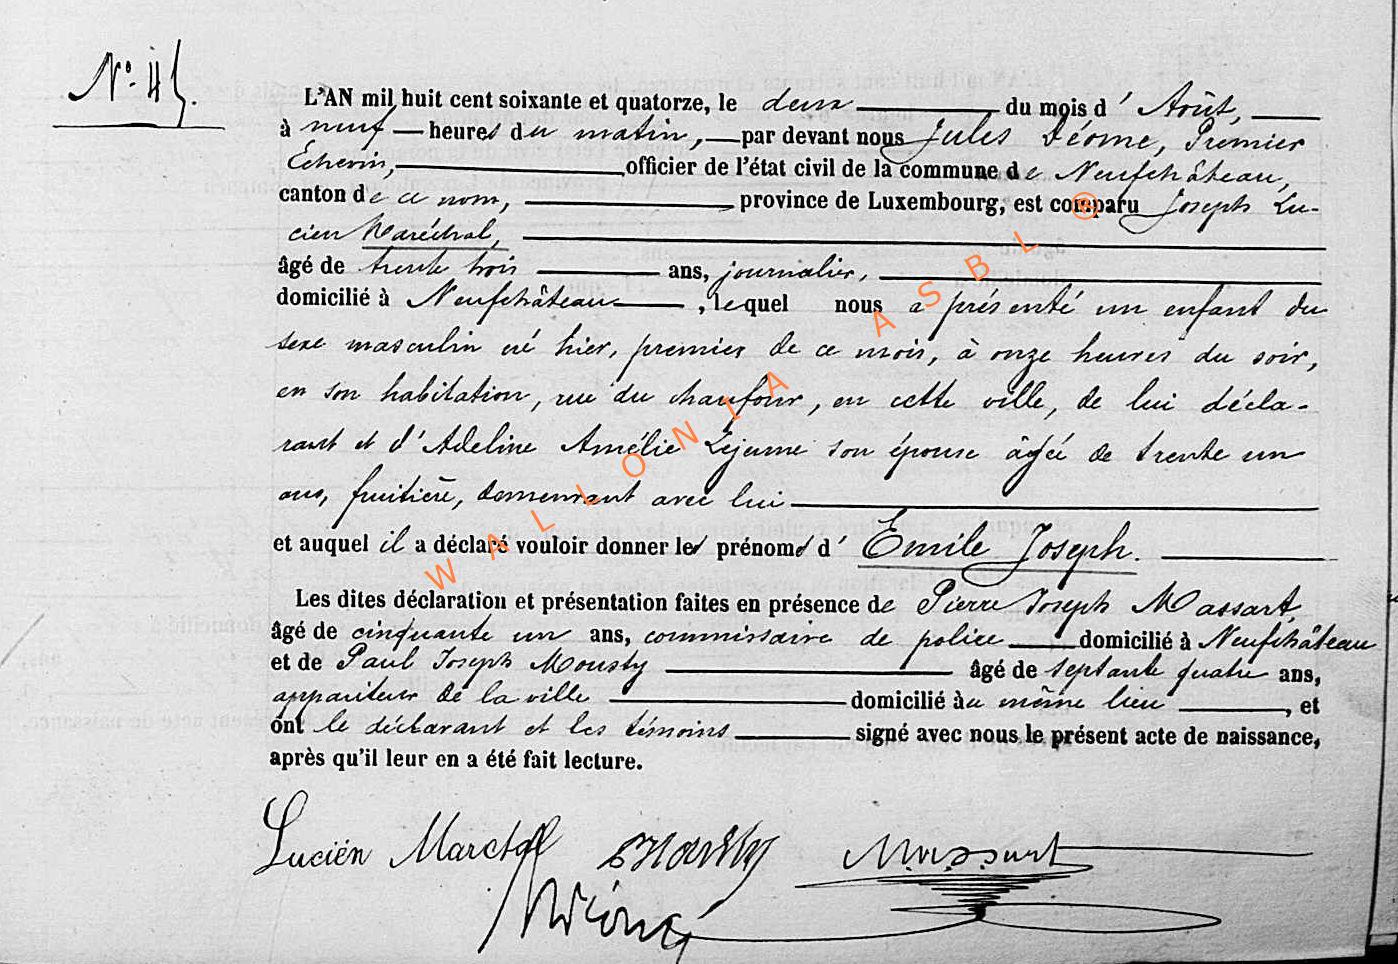 N° 45.
L'AN mil huit cent soixante et quatorze, le deux du mois d' Août,
à neuf heures du matin, par devant nous Jules Déome, Premier
Echevin, officier de l'état civil de la commune de Neufchâteau,
canton de ce nom, province de Luxembourg, est comparu Joseph Lu-
cien Maréchal,
âgé de trente trois ans, journalier,
domicilié à Neufchâteau, lequel nous a présenté un enfant du
sexe masculin né hier, premier de ce mois, à onze heures du soir,
en son habitation, rue du chaufour, en cette ville, de lui décla-
rant et d'Adeline Amélie Lejeune son épouse âgée de trente un
ans, fruitière, demeurant avec lui
et auquel il a déclaré vouloir donner les prénoms d' Emile Joseph.
Les dites déclaration et présentation faites en présence de Pierre Joseph Massart,
âgé de cinquante un ans, commissaire de police domicilié à Neufchâteau
et de Paul Joseph Mousty âgé de septante quatre ans,
appariteur de la ville domicilié au même lieu, et
ont le déclarant et les témoins signé avec nous le présent acte de naissance,
après qu'il leur en a été fait lecture.
Lucien Marechal Mousty Massart
WALLONIA ASBL ®